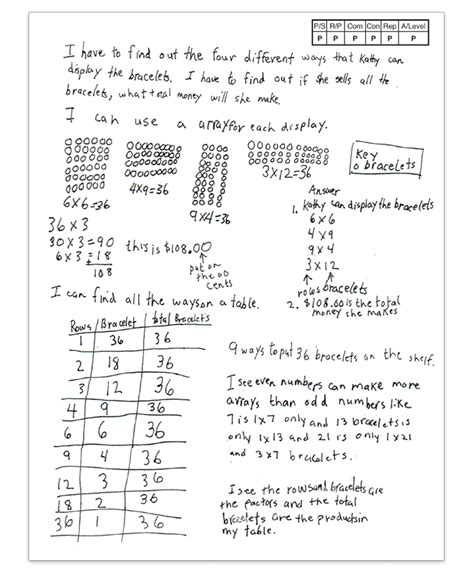 P/S R/P Com Con Rep A/Level
P P P P P P
I have to find out the four different ways that Kathy can
display the bracelets. I have to find out if she sells all the
bracelets, what total money will she make.
I can use a array for each display.
6x6=36
4x9=36
9x4=36
3x12=36
Key
o bracelets
36 x 3
30 x 3 = 90
6 x 3 = + 18
108
this is $108.00
put on
the 00
cents
Answer
1. Kathy can display the bracelets
6 x 6
4 x 9
9 x 4
3 x 12
rows bracelets
2. $108.00 is the total
money she makes
I can find all the ways on a table.
Rows Bracelet total Bracelets
1 36 36
2 18 36
3 12 36
4 9 36
6 6 36
9 4 36
12 3 36
18 2 36
36 1 36
9 ways to put 36 bracelets on the shelf.
I see even numbers can make more
arrays than odd numbers like
7 is 1x7 only and 13 bracelets is
only 1x13 and 21 is only 1x21
and 3x7 bracelets.
I see the rows and bracelets are
the factors and the total
bracelets are the products in
my table.